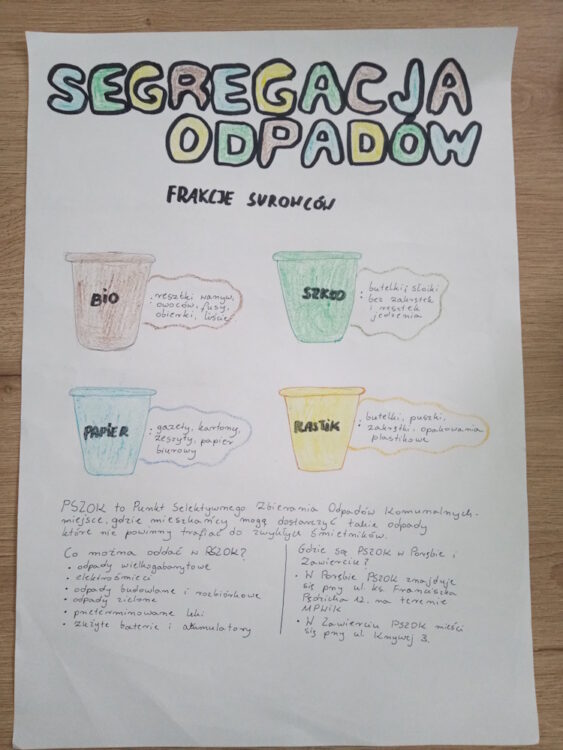 SEGREGACJA
ODPADÓW
FRAKCJE SUROWCÓW
BIO
: resztki warzyw,
owoców, fusy,
obierki, liście
SZKŁO
: butelki, słoiki
bez zakrętek
i resztek
jedzenia
PAPIER
: gazety, kartony,
zeszyty, papier
biurowy
PLASTIK
: butelki, puszki,
zakrętki, opakowania
plastikowe
PSZOK to Punkt Selektywnego Zbierania Odpadów Komunalnych -
miejsce, gdzie mieszkańcy mogą dostarczyć takie odpady
które nie powinny trafiać do zwykłych śmietników.
Co można oddać w PSZOK?
• odpady wielkogabarytowe
• elektrośmieci
• odpady budowlane i rozbiórkowe
• odpady zielone
• przeterminowane leki
• zużyte baterie i akumulatory
Gdzie są PSZOK w Porębie i
Zawierciu?
• W Porębie PSZOK znajduje
się przy ul. ks. Franciszka
Pędzicha 12. na terenie
MPWiK
• W Zawierciu PSZOK mieści
się przy ul. Krzywej 3.